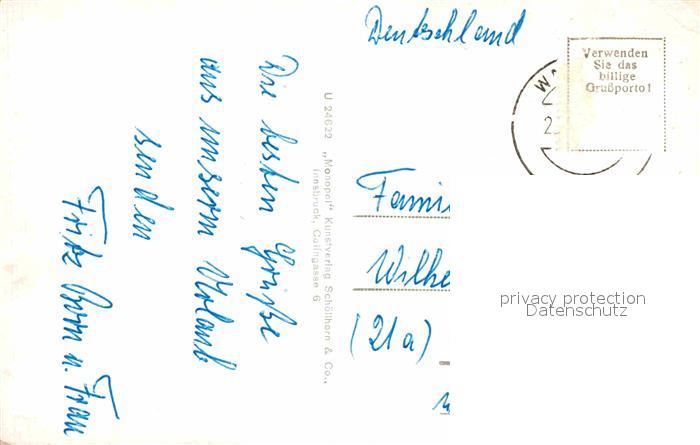 Deutschland
Verwenden
Sie das
billige
Grußporto!
Die besten Grüße
aus unserm Urlaub
senden
Fritz Born u. Frau
U 24622 „Monopol" Kunstverlag Schöllhorn & Co.,
Innsbruck, Colingasse 6
Fami
Wilhe
(21a)
privacy protection
Datenschutz